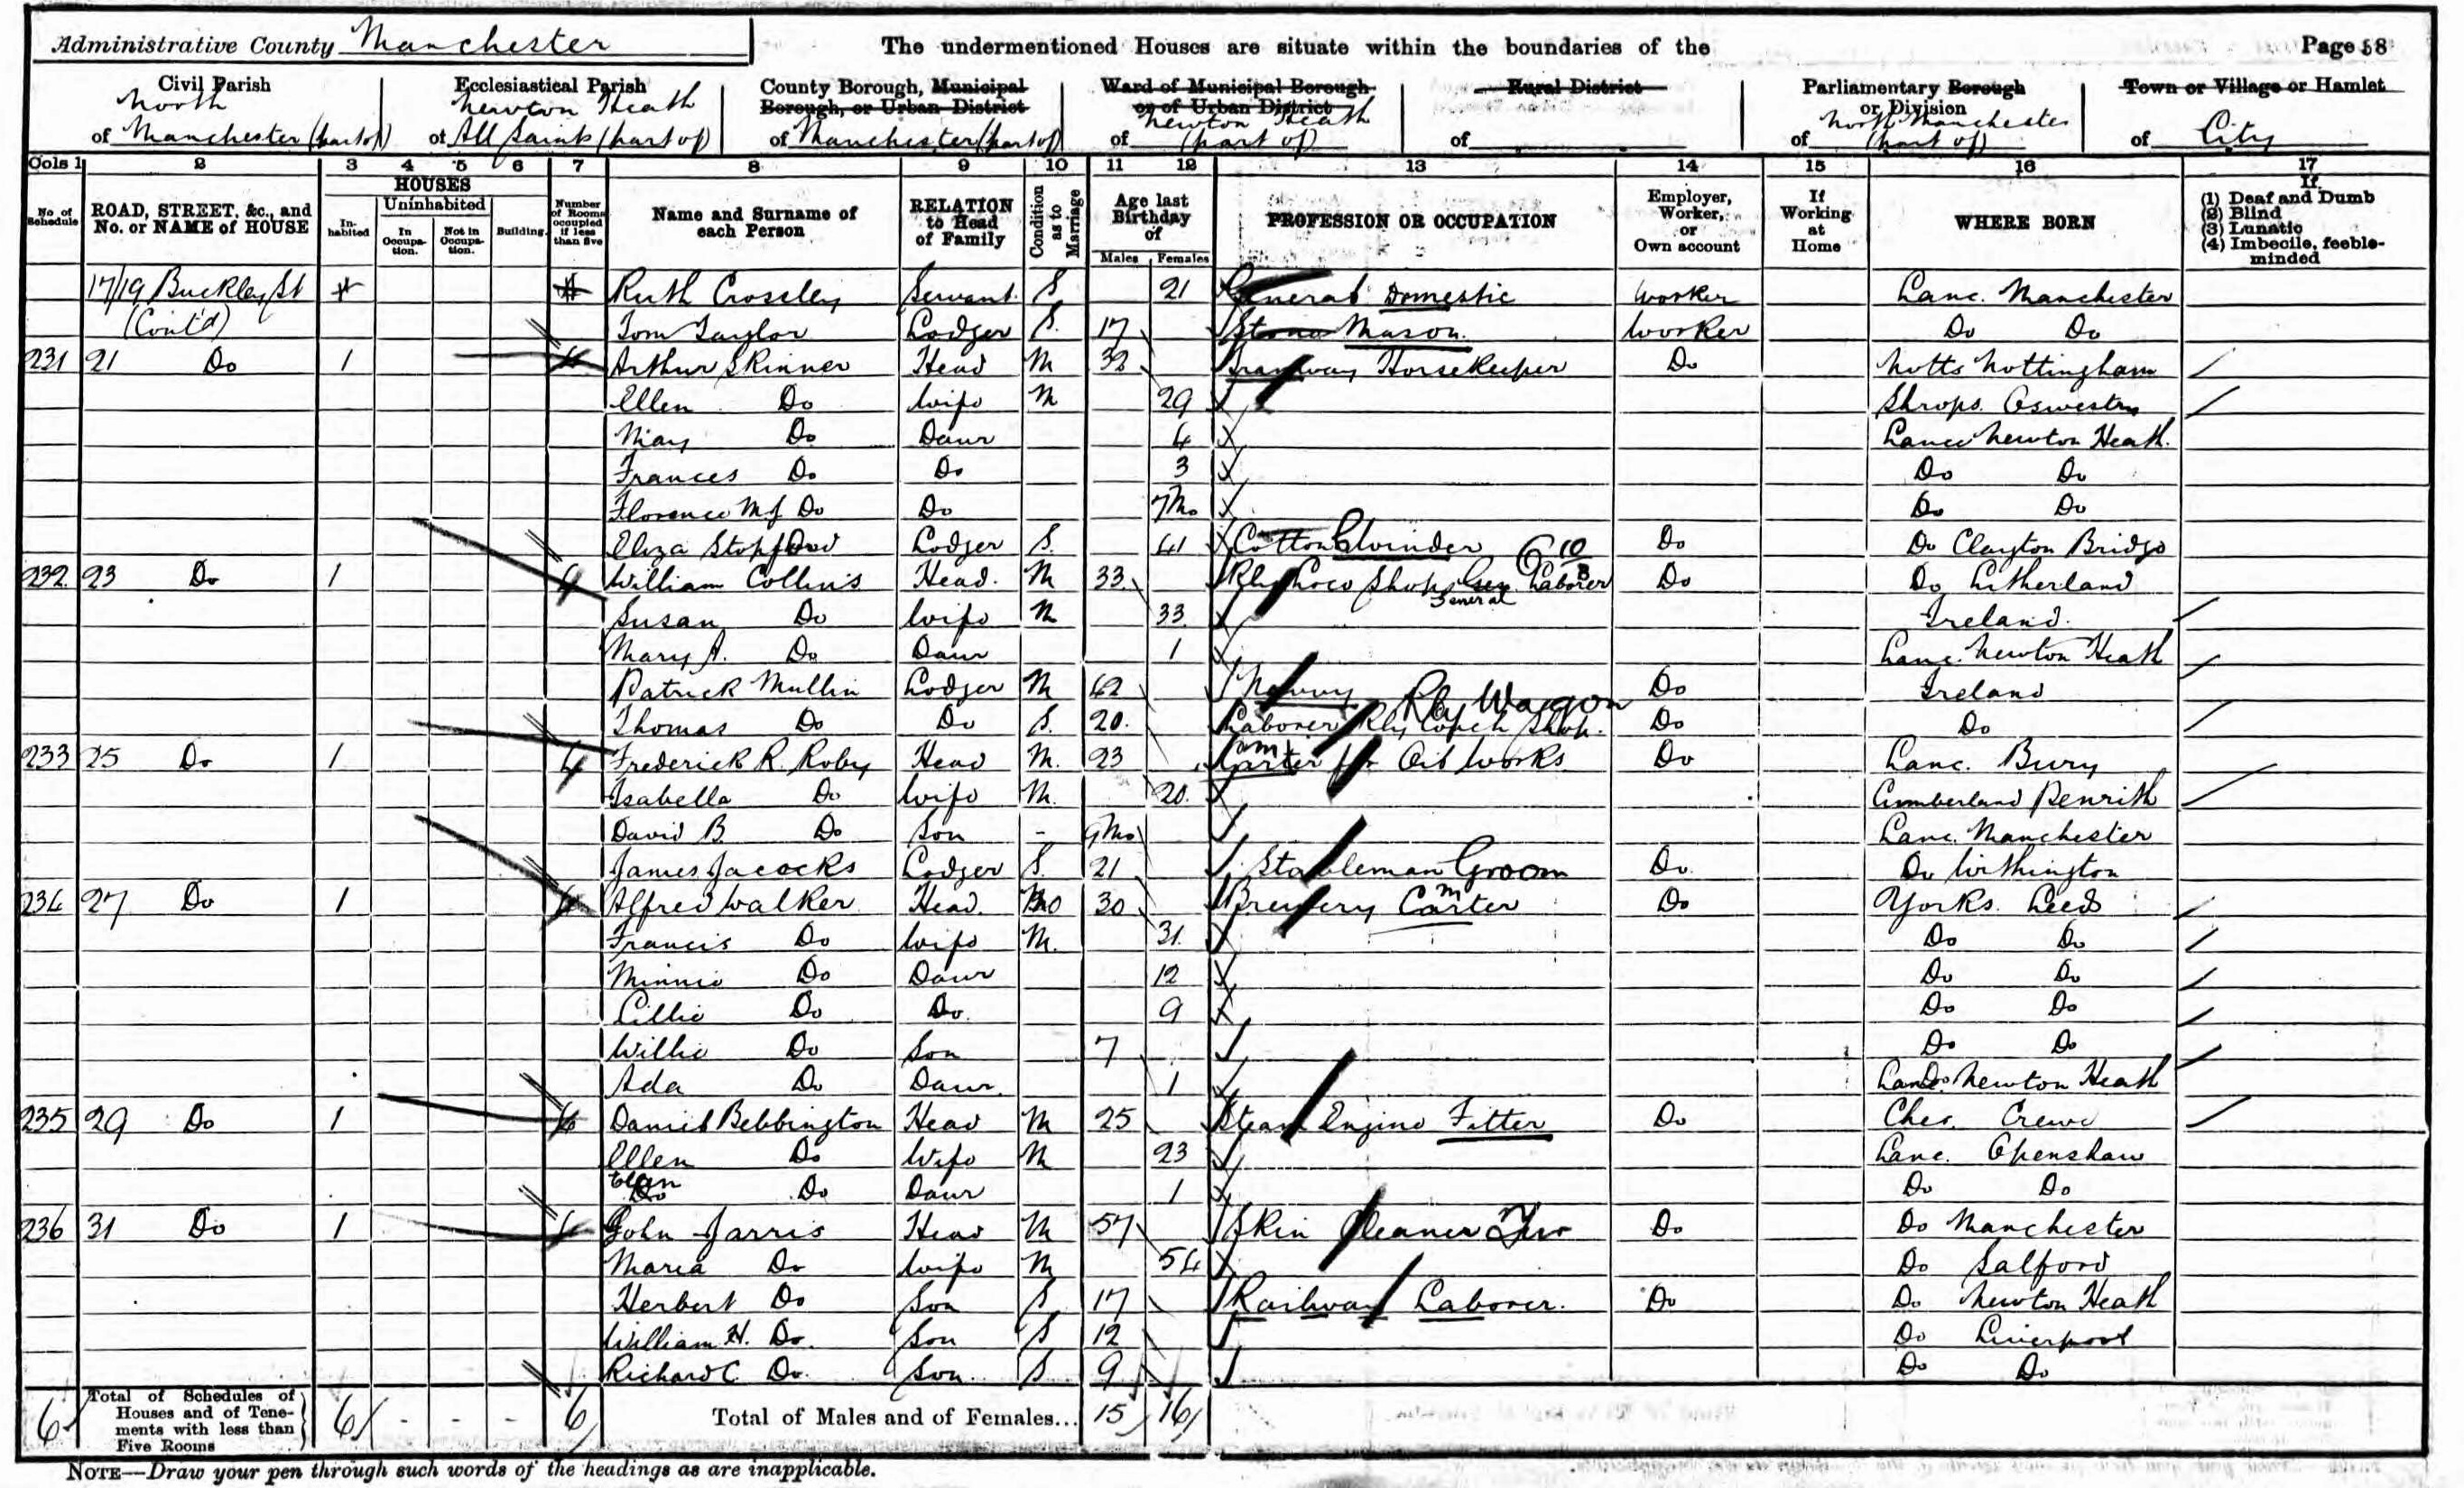 Administrative County Manchester
The undermentioned Houses are situate within the boundaries of the
Page 58
Civil Parish North of Manchester (part of)
Ecclesiastical Parish Newton Heath of All Saints (part of)
County Borough, Municipal Borough, or Urban District of Manchester (part of)
Ward of Municipal Borough or of Urban District of Newton Heath (part of)
Rural District of
Parliamentary Borough or Division of North Manchester (part of)
Town or Village or Hamlet of City
Cols 1 2 3 4 5 6 7 8 9 10 11 12 13 14 15 16 17
No. of Schedule
ROAD, STREET, &c., and No. or NAME of HOUSE
HOUSES
Inhabited
Uninhabited
In Occupation.
Not in Occupation.
Building.
Number of Rooms occupied if less than five
Name and Surname of each Person
RELATION to Head of Family
Condition as to Marriage
Age last Birthday of
Males Females
PROFESSION OR OCCUPATION
Employer, Worker, or Own account
If Working at Home
WHERE BORN
If
(1) Deaf and Dumb
(2) Blind
(3) Lunatic
(4) Imbecile, feeble-minded
17/19 Buckley St Ruth Crossley Servant S 21 General Domestic Worker Lanc. Manchester
(Cont'd) Tom Taylor Lodger S. 17 Stone Mason. Worker Do Do
231 21 Do 1 4 Arthur Skinner Head M 32 Tramway Horsekeeper Do Notts Nottingham
Ellen Do Wife M 29 Shrops. Oswestry
May Do Daur 4 Lanc Newton Heath.
Frances Do Do 3 Do Do
Florence M J Do Do 7Mo Do Do
Eliza Stopford Lodger S. 41 Cotton Winder Do Do Clayton Bridge
232 23 Do 1 4 William Collins Head. M 33 Rly Loco Shop Gen. Laborer Do Do Litherland
General
Susan Do Wife M 33 Ireland.
Mary A. Do Daur 1 Lanc. Newton Heath
Patrick Mullin Lodger M 42 Navvy Do Ireland
Rly Wagon
Thomas Do Do S. 20. Laborer Rly Coach Shop. Do Do
233 25 Do 1 4 Frederick R. Roby Head M. 23 Carter for Oil Works Do Lanc. Bury
Isabella Do Wife M. 20. Cumberland Penrith
David B. Do Son - 9Mo Lanc. Manchester
James Jacocks Lodger S. 21 Stableman Groom Do. Do Withington
234 27 Do 1 4 Alfred Walker Head. M 30 Brewery Carter Do Yorks. Leeds
Francis Do Wife M. 31. Do Do
Minnie Do Daur 12 Do Do
Lillie Do Do. 9 Do Do
Willie Do Son 7 Do Do
Ada Do Daur. 1 Lanc Newton Heath
235 29 Do 1 4 Daniel Bebbington Head M 25 Steam Engine Fitter Do Ches. Crewe
Ellen Do Wife M 23 Lanc. Openshaw
Do Do Daur 1 Do Do
236 31 Do 1 4 John Jarris Head M 57 Skin Cleaner Do Do Manchester
Maria Do Wife M 54 Do Salford
Herbert Do Son S 17 Railway Laborer. Do Do Newton Heath
William H. Do. Son S 12 Do Liverpool
Richard C Do. Son. S. 9 Do Do
6 Total of Schedules of Houses and of Tenements with less than Five Rooms 6 - - - 6 Total of Males and of Females... 15 16
NOTE—Draw your pen through such words of the headings as are inapplicable.